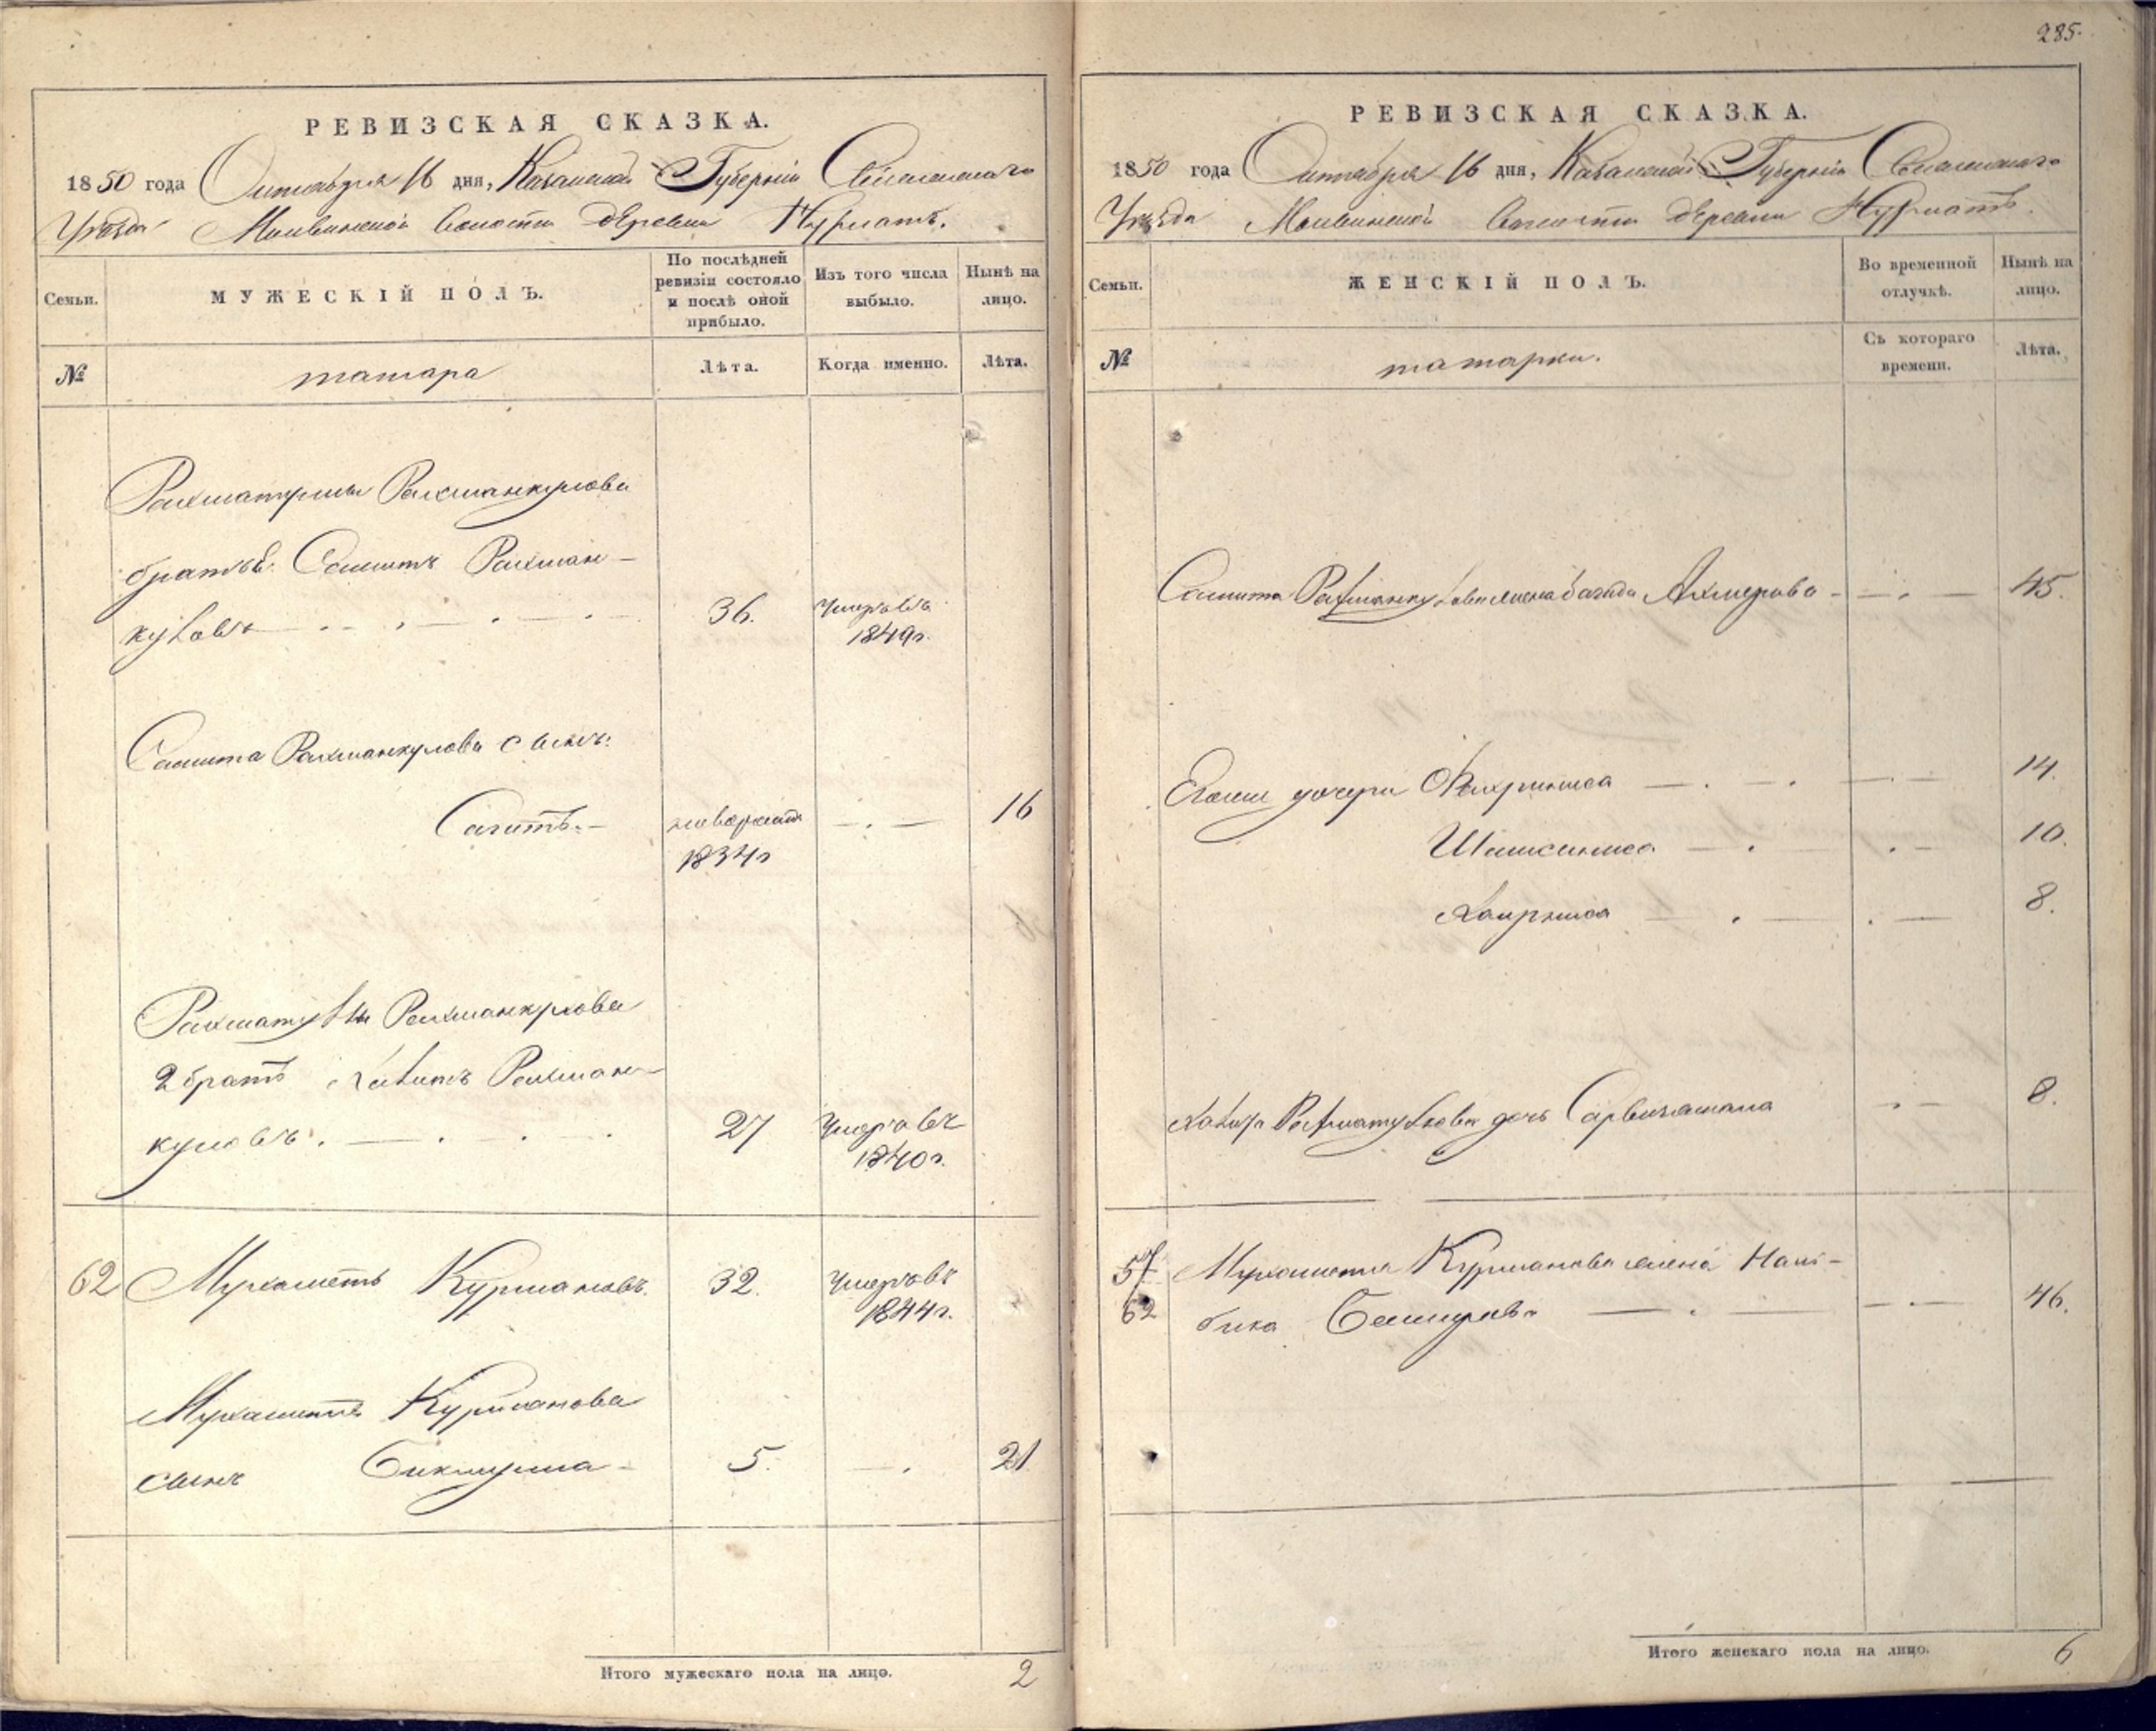 285.
РЕВИЗСКАЯ СКАЗКА.
1850 года Октября 16 дня, Казанской Губернiи
Уѣзда волости деревни Нурматъ.
Семьи.
МУЖЕСКIЙ ПОЛЪ.
По послѣдней ревизiи состояло и послѣ оной прибыло.
Изъ того числа выбыло.
Нынѣ на лицо.
№
татара
Лѣта.
Когда именно.
Лѣта.
Рахматуллы Рахманкулова
братья: Рахман-
куловъ 36. умеръ въ 1849г.
Рахманкулова сынъ:
Сагитъ новорожден 1834г 16
Рахматуллы Рахманкулова
2 братъ Рахман-
куловъ. 27 умеръ въ 1840г.
62 Мухаметъ Курмановъ. 32. умеръ въ 1844г.
Мухаметъ Курманова
сынъ Бикмулла 5. 21
Итого мужескаго пола на лицо. 2
РЕВИЗСКАЯ СКАЗКА.
1850 года Октября 16 дня, Казанской Губернiи
Уѣзда волости деревни Нурматъ.
Семьи.
ЖЕНСКIЙ ПОЛЪ.
Во временной отлучкѣ.
Нынѣ на лицо.
№
татарки.
Съ котораго времени.
Лѣта.
Рахманкулова жена Ахмерова 45.
Его дочери Фахриниса 14.
Шамсиниса 10.
Хаирниса 8.
Рахматуллова дочь 8.
57 Мухамета Курманова жена
62 бика Баширова 46.
Итого женскаго пола на лицо. 6